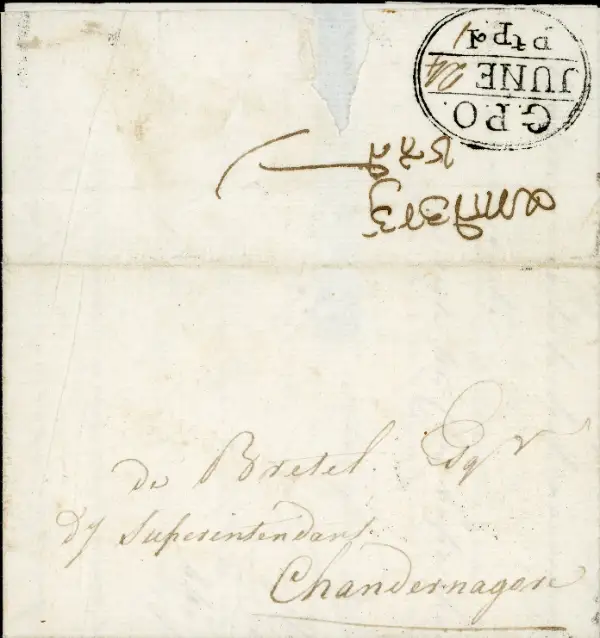 G.P.O.
JUNE 24
Ptpd
de Bretel. Esqr
Dy Superintendant
Chandernagore